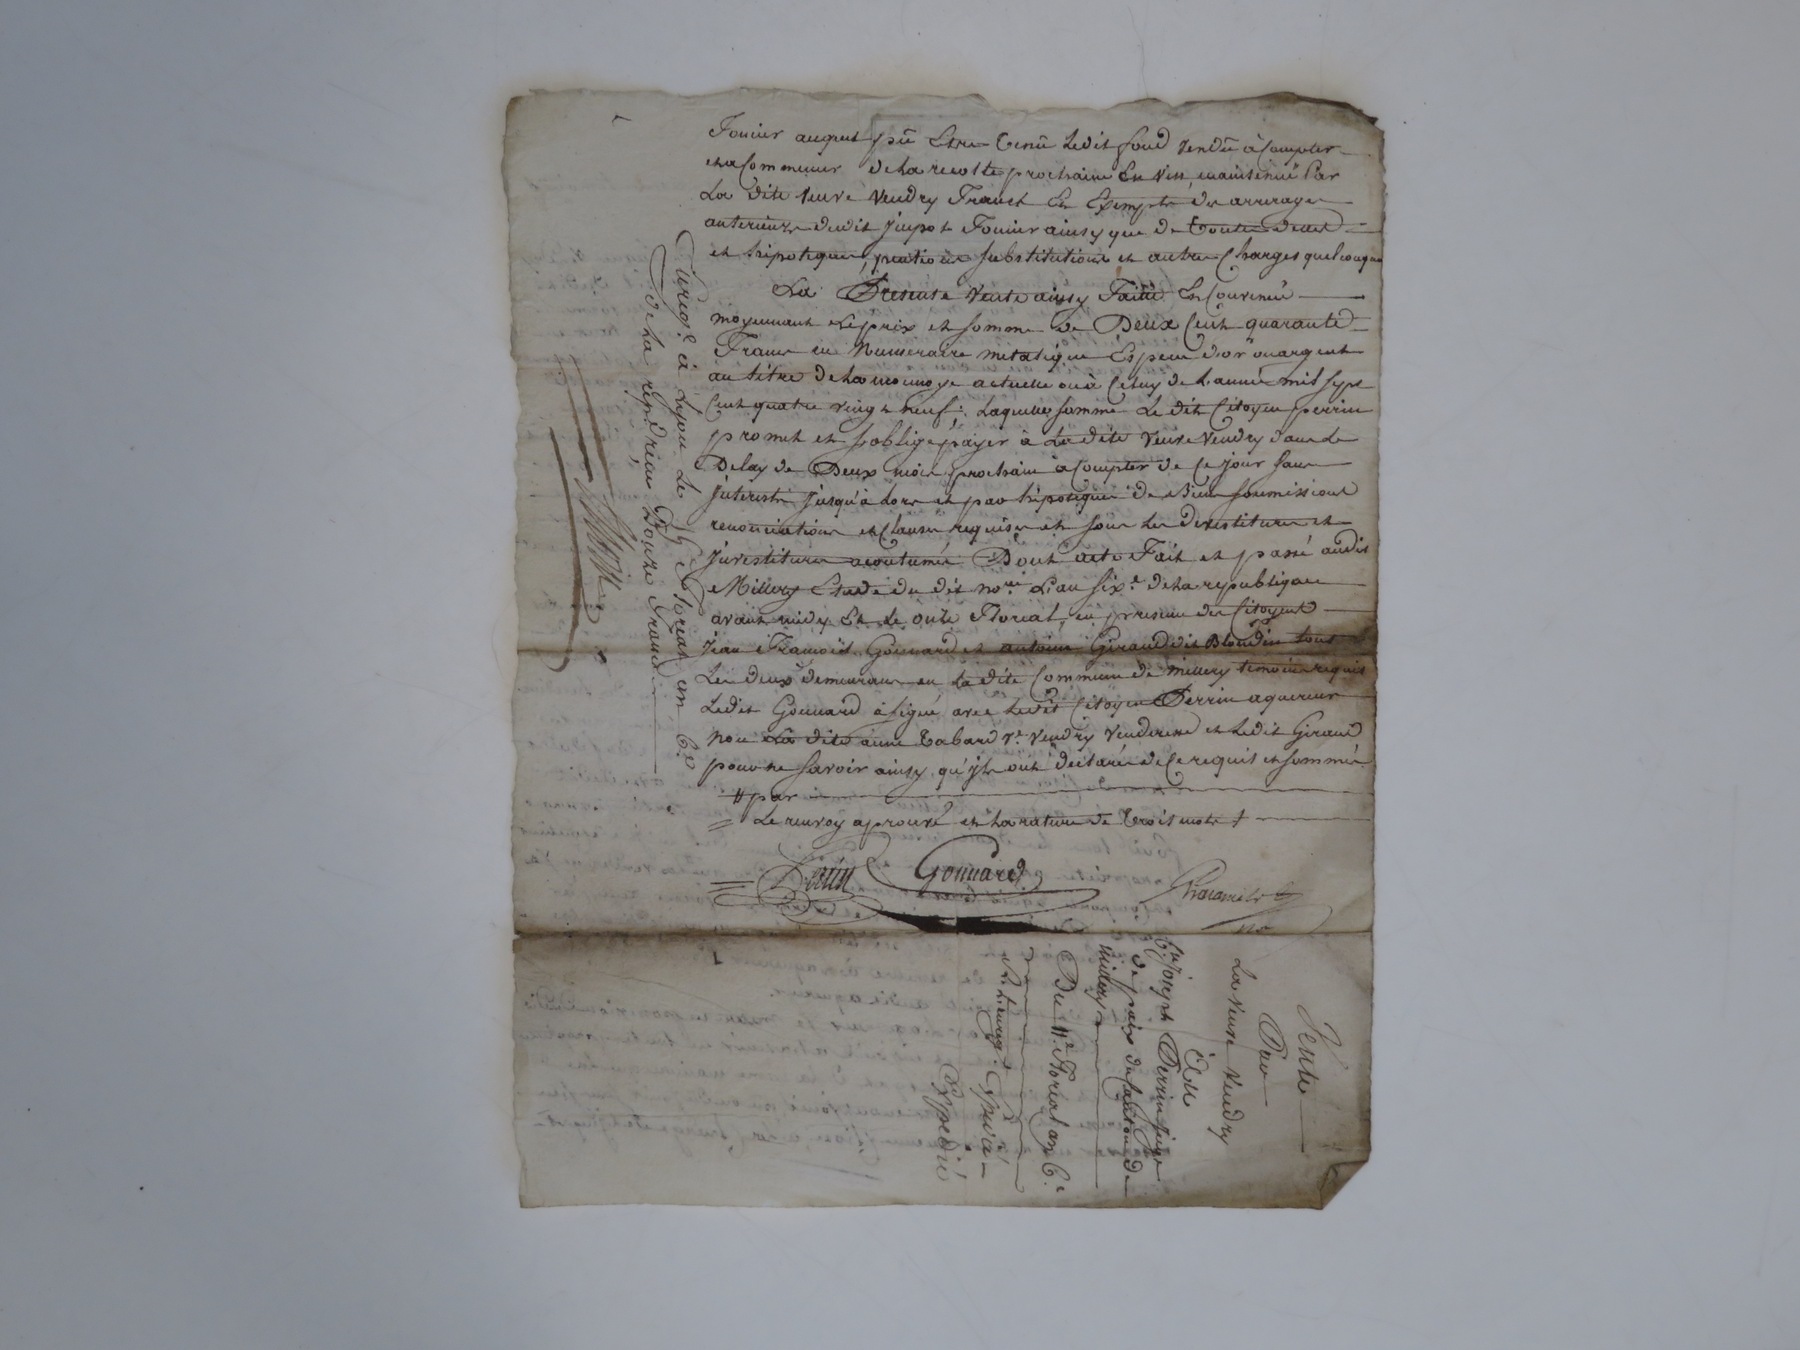 Foncier auquel pû Etre tenû Ledit fond vendû à Compter
et a Commencer de La recolte prochaine En vin, maintenüe Par
La dite veuve vendry Franch Et Exempte des arrerages
anterieurs dudit jmpot Foncier ainsy que de toutes dettes
et hipoteques, substitutions et autres Charges quelconques
La Presente vente ainsy Faitte Et Convenüe
moyennant Le prix et somme de Deux Cent quarante
Francs en Numeraire metalique Espece d'or ou argent
au titre de La monnoye actuelle ou à Celuy de L'année mil sept
Cent quatre vingt neuf: Laquelle somme Le dit Citoyen perrin
promet et s'oblige payer à La dite veuve vendry dans Le
Delay de Deux mois prochain à Compter de Ce jour sans
jnterests jusqu'à Lors et par hipoteque de ses Biens soumissions
renonciations et Clauses requises et sous Les devestitures et
jnvestitures acoutumées Dont acte Fait et passé audit
Millery Etude du dit no.re L'an six.e de La republique
avant midy Et Le onze Floreal, en presence des Citoyens
Jean François Gonnard et antoine Giraud dit Blondin tous
Les deux demeurans en La dite Commune de Millery temoins requis
Ledit Gonnard à signé avec Ledit Citoyen Perrin aquereur
non La dite anne tabard v.e vendry venderesse et Ledit Giraud
pour ne savoir ainsy qu'jls ont declaré de Ce requis et sommé
# par
Le renvoy aprouvé et La rature de trois mots +
Perrin Gonnard
no.re
Enreg.é à Lyon Le Floreal an 6.e
de La rép. Douze Francs
Vente
Par
La veuve vendry
Au
C.en Joseph Perrin juge
de paix du Canton de
Millery
Du 11.e Floreal an 6.e
Expédié
Expedié